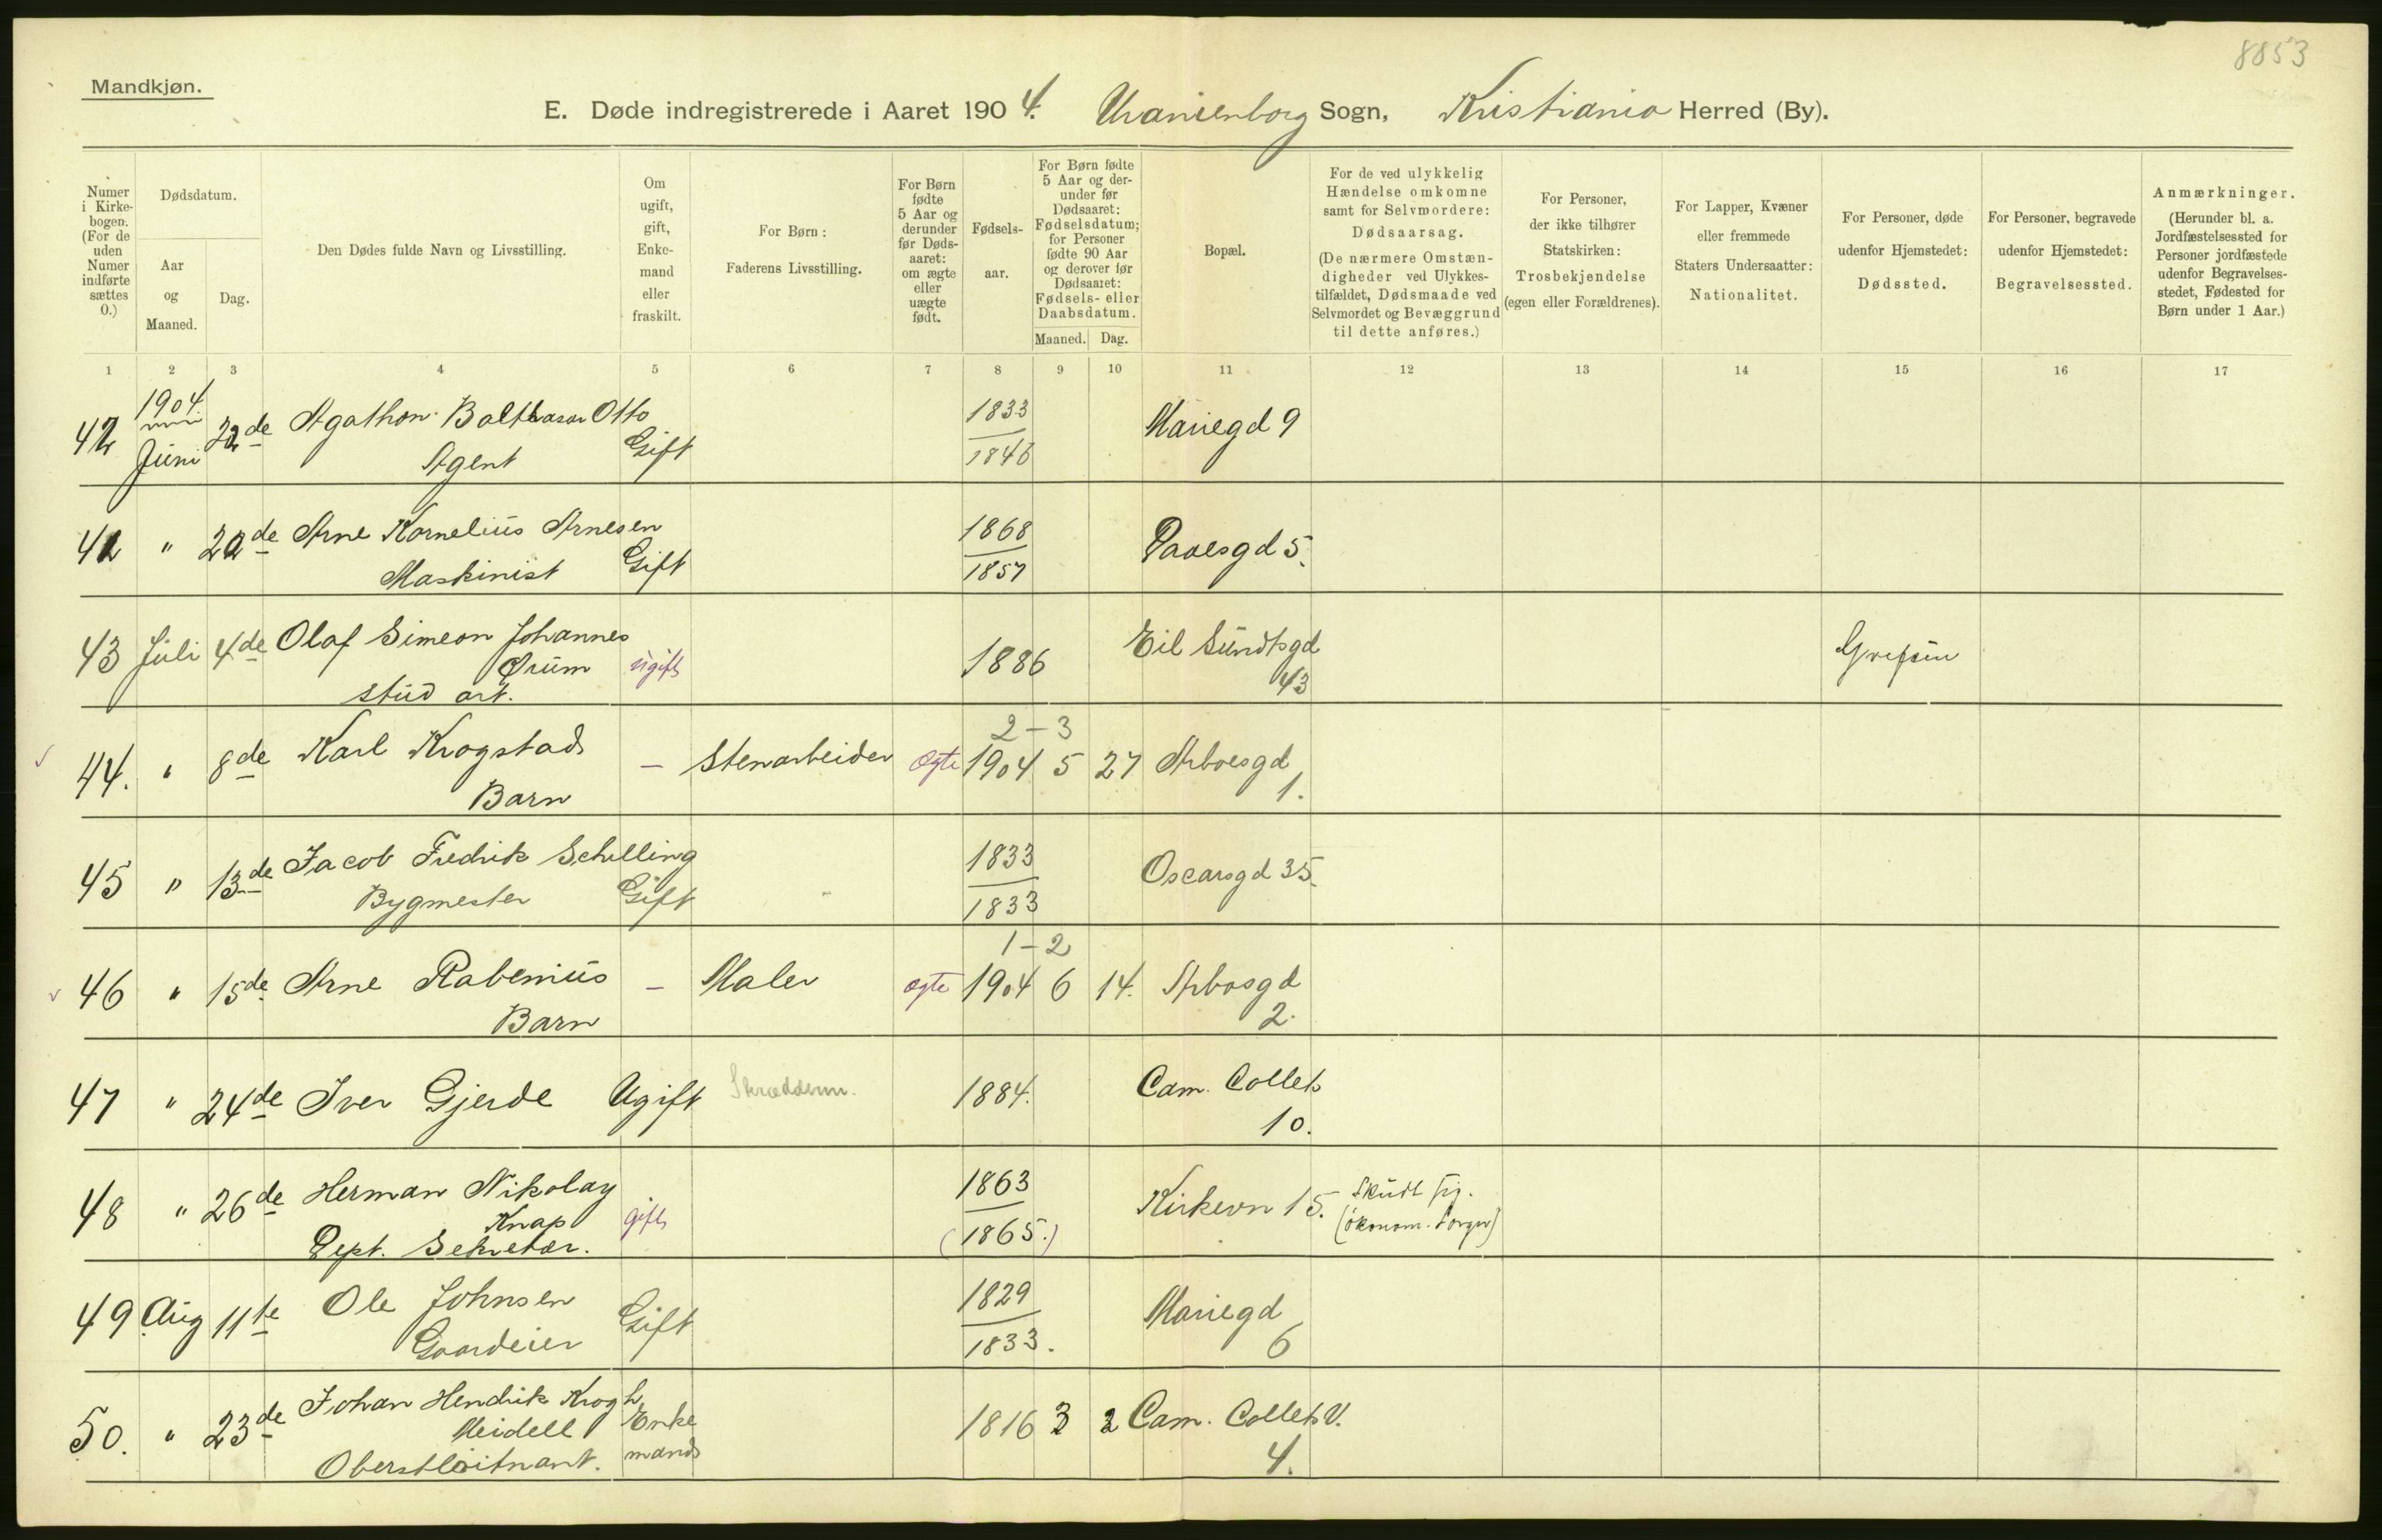 8853
Mandkjøn.
E. Døde indregistrerede i Aaret 1904. Uranienborg Sogn, Kristiania Herred (By).
Numer i Kirkebogen. (For de uden Numer indførte sættes 0.)
Dødsdatum.
Aar og Maaned.
Dag.
Den Dødes fulde Navn og Livsstilling.
Om ugift, gift, Enkemand eller fraskilt.
For Børn: Faderens Livsstilling.
For Børn fødte 5 Aar og derunder før Dødsaaret: om ægte eller uægte født.
Fødselsaar.
For Børn fødte 5 Aar og derunder før Dødsaaret: Fødselsdatum; for Personer fødte 90 Aar og derover før Dødsaaret: Fødsels- eller Daabsdatum.
Maaned. Dag.
Bopæl.
For de ved ulykkelig Hændelse omkomne samt for Selvmordere: Dødsaarsag. (De nærmere Omstændigheder ved Ulykkestilfældet, Dødsmaade ved Selvmordet og Bevæggrund til dette anføres.)
For Personer, der ikke tilhører Statskirken: Trosbekjendelse (egen eller Forældrenes).
For Lapper, Kvæner eller fremmede Staters Undersaatter: Nationalitet.
For Personer, døde udenfor Hjemstedet: Dødssted.
For Personer, begravede udenfor Hjemstedet: Begravelsessted.
Anmærkninger. (Herunder bl. a. Jordfæstelsessted for Personer jordfæstede udenfor Begravelsesstedet, Fødested for Børn under 1 Aar.)
1 2 3 4 5 6 7 8 9 10 11 12 13 14 15 16 17
1904.
Juni 22de Agathon Balthasar Otto Gift 1833 Mariegd 9
Agent 1846
42 " de Arne Kornelius Arnesen Gift 1868 5.
Maskinist 1857
43 Juli 4de Olaf Simeon Johannes Ørum ugift 1886 Eil Sundtsgd 43 Grefsen
stud art.
2-3
44. " 8de Karl Krogstad - Stenarbeider ægte 1904 5 27 Arboesgd 1.
Barn
45 " 13de Jacob Fredrik Schilling Gift 1833 Oscarsgd 35.
Bygmester 1833
1-2
46 " 15de Arne Rabenius - Maler ægte 1904 6 14. Arbosgd 2.
Barn
47 " 24de Iver Gjerde Ugift 1884. Cam. Collets 10.
48 " 26de Herman Nikolay Knap gift 1863 Kirkevn 15. Skudt sig.
Dept. Sekretær. (1865.) (økonom. Sorger)
49 Aug 11te Ole Johnsen Gift 1829 Mariegd 6
Gaardeier 1833.
50. " 23de Johan Hendrik Krogh Meidell Enkemand 1816 3 2 Cam. Collets V. 4.
Oberstløitnant.